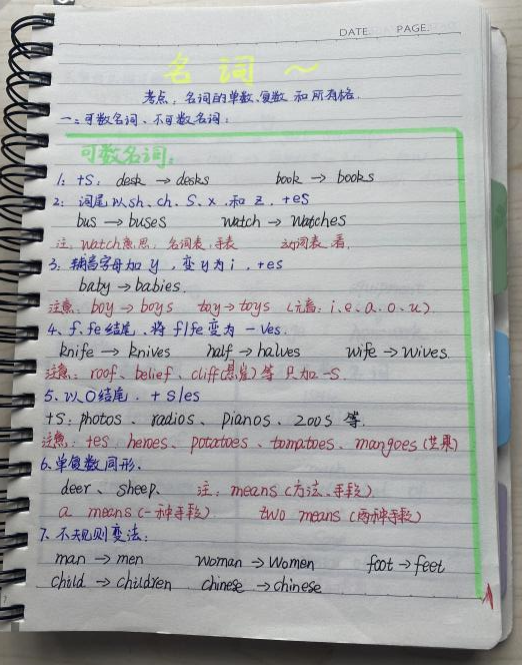 DATE PAGE
名词～
考点：名词的单数、复数和所有格.
一：可数名词、不可数名词：
可数名词：
1： +s： desk → desks book → books
2： 词尾以sh、ch、S、x、和 z、+es
bus → buses watch → watches
注：watch意思：名词表：手表 动词表 看.
3：辅音字母加 y ，变 y 为 i ，+es
baby → babies.
注意：boy → boys toy → toys （元音：i、e、a、o、u）
4、f、fe结尾、将 f/fe 变为 -ves.
knife → knives half → halves wife → wives.
注意：roof、belief、cliff(悬崖) 等 只加 -s.
5、以O结尾、+ s/es
+s：photos、radios、pianos、zoos 等.
注意：+es heroes、potatoes、tomatoes、mangoes (芒果)
6、单复数同形.
deer、sheep、 注：means (方法、手段)
a means (一种手段) two means (两种手段)
7、不规则变法：
man → men woman → Women foot → feet
child → children chinese → chinese